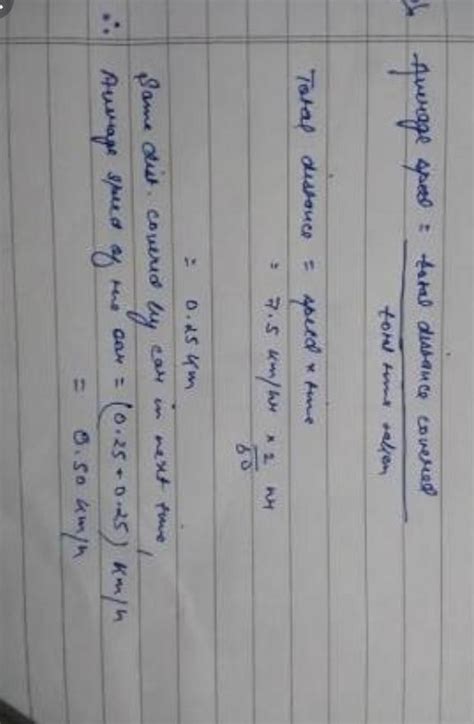 Average speed = total distance covered
total time taken
Total distance = speed × time
= 7.5 km/hr × 2 hr
60
= 0.25 km
Same dist. covered by car in next time,
∴ Average speed of the car = (0.25 + 0.25) km/h
= 0.50 km/h